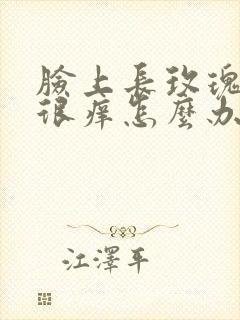 臉上長玫瑰
很痒怎麼办
江澤平